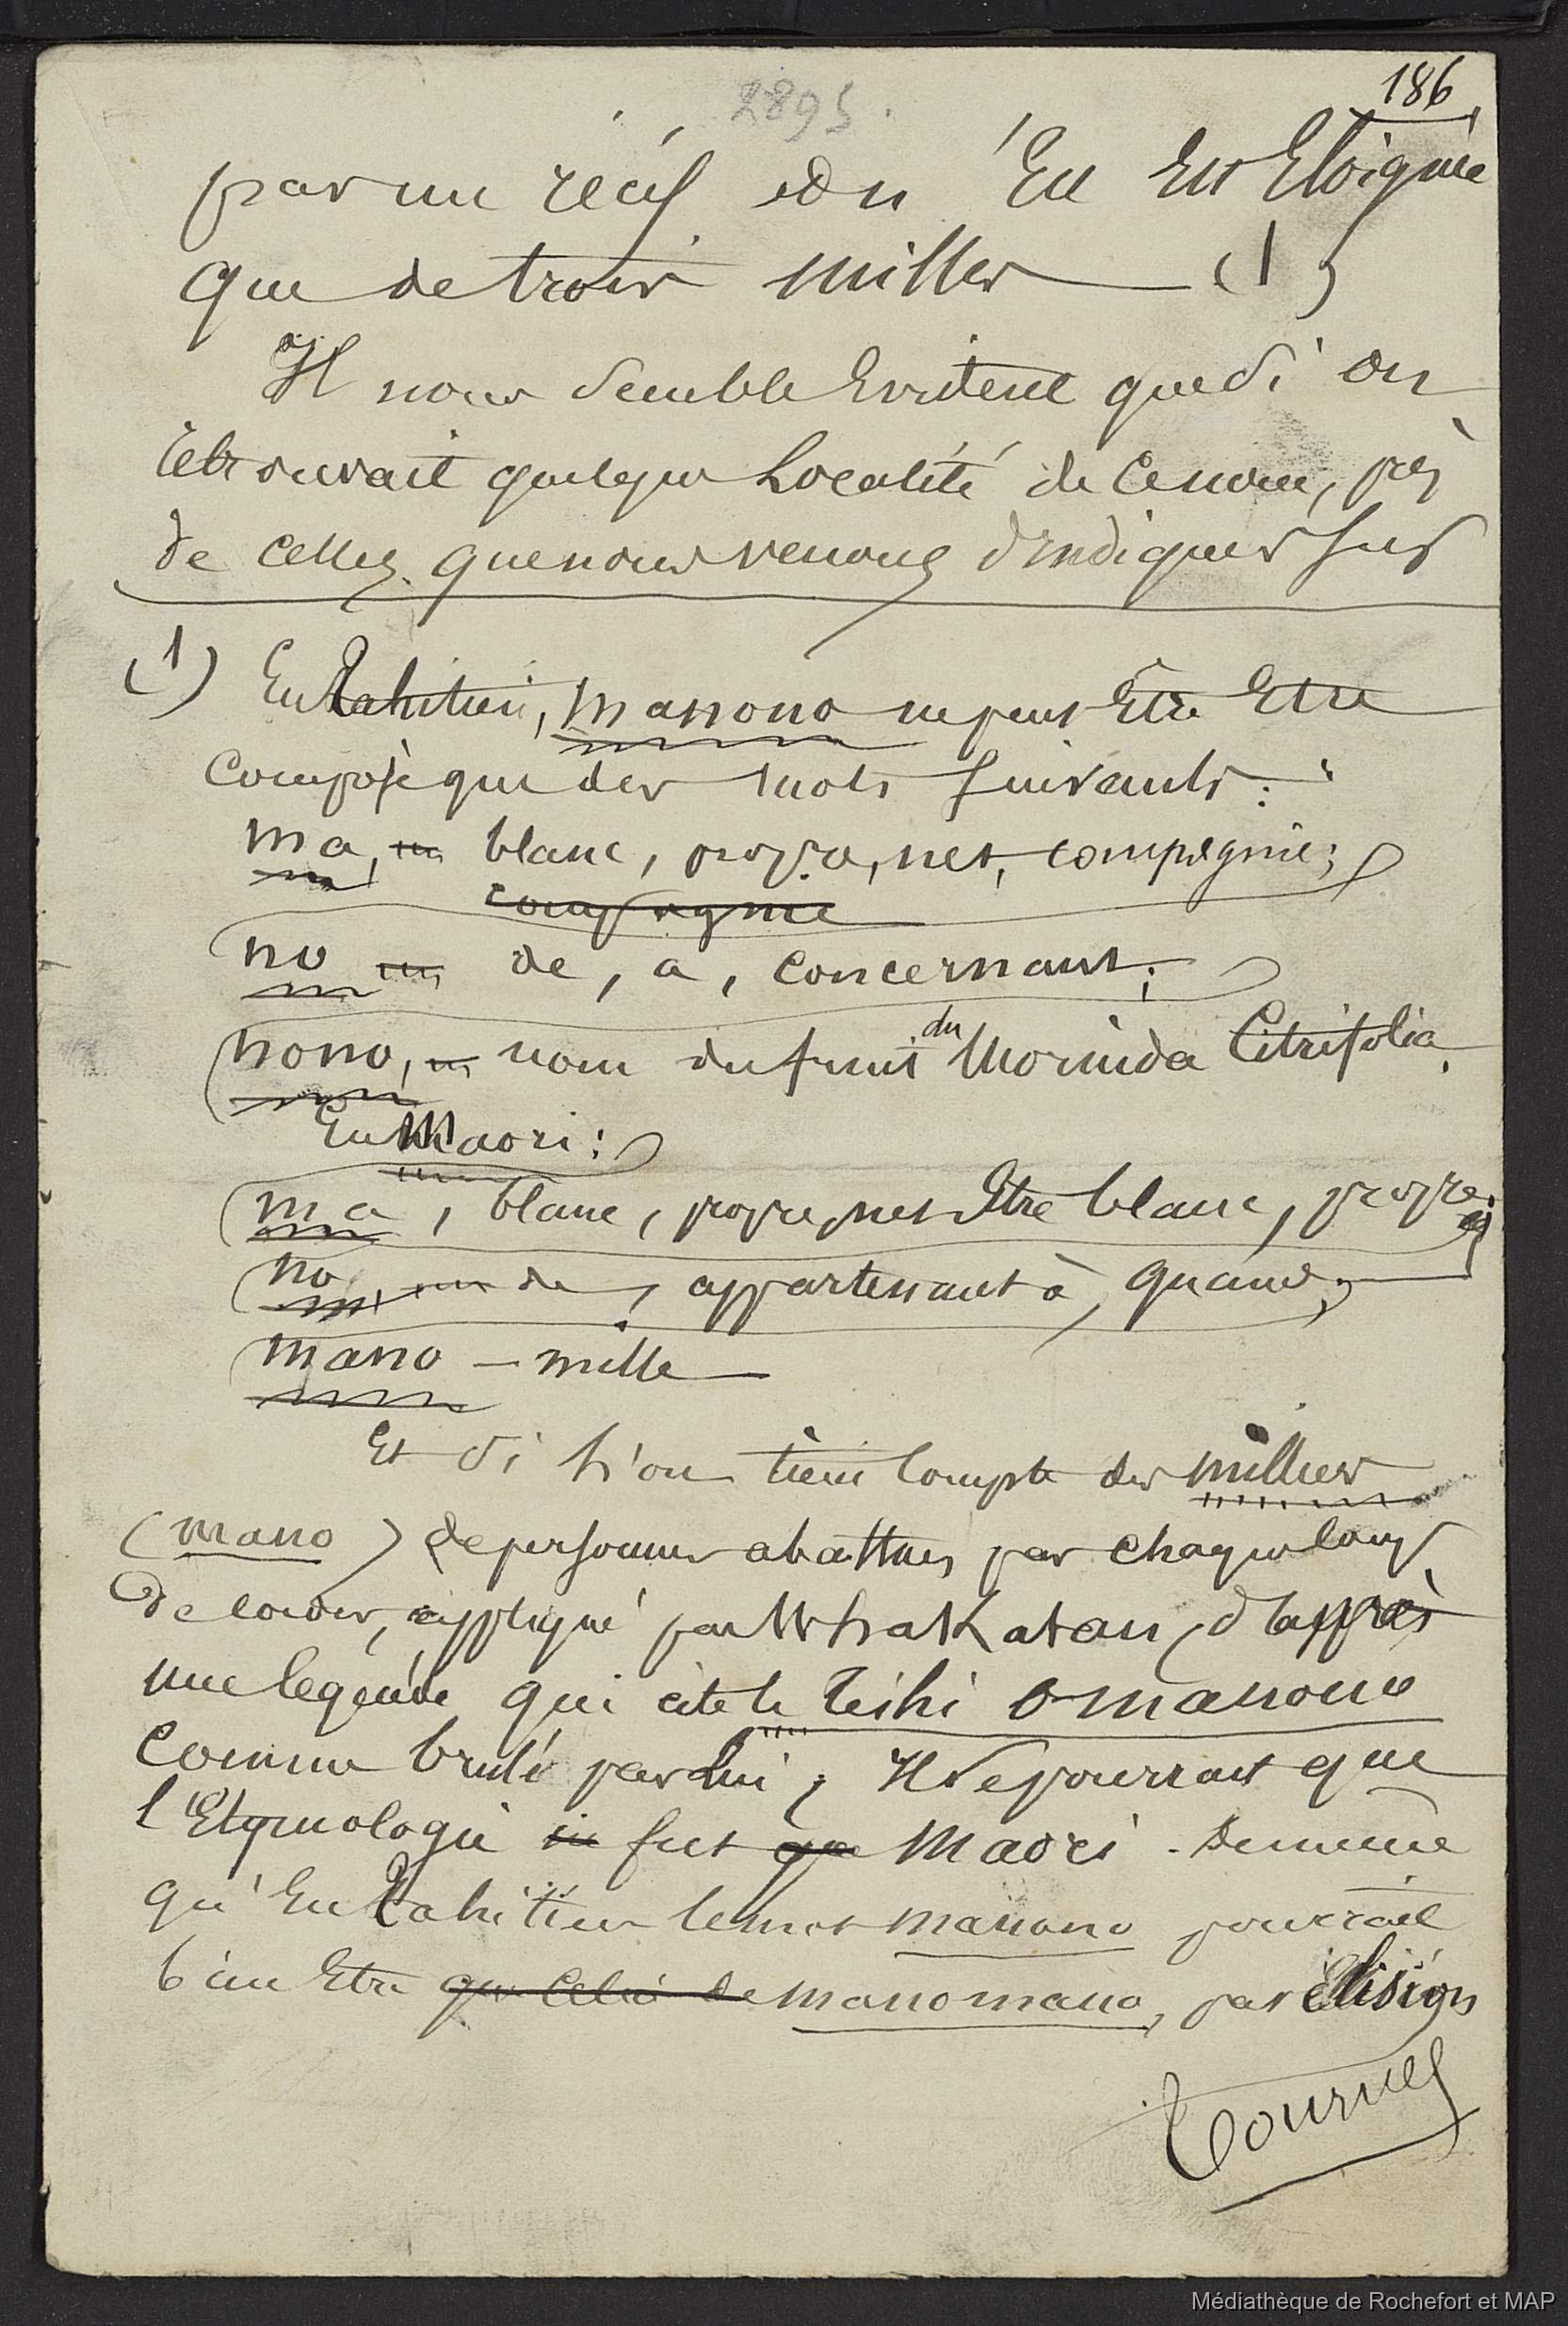 186
2895.
par un récif et n'en est Éloignée
que de trois milles (1)
Il nous semble Evident que si on
retrouvait quelque Localité de ce nom, près
de celles que nous venons d'indiquer sur
(1) En Tahitien, manono ne peut Etre Etre
composé que des mots suivants :
ma, blanc, propre, net, compagnie;
compagnie
no de, a, concernant;
nono, nom du fruit du Morinda Citrifolia.
En Maori :
ma, blanc, propre, net Etre blanc, propre;
no de, appartenant à, quand;
mano — mille
Et si l'on tient compte des milliers
(mano) de personnes abattues par chaque coup
de appliqué par Whakatau, d'après
une légende qui cite le Teihi o manono
comme brulé par lui; Il se pourrait que
l'Etymologie fut Maori. De même
qu'En Tahitien le mot manono pourrait
bien Etre que celui de manomano, par Elision
Tournez
Médiathèque de Rochefort et MAP